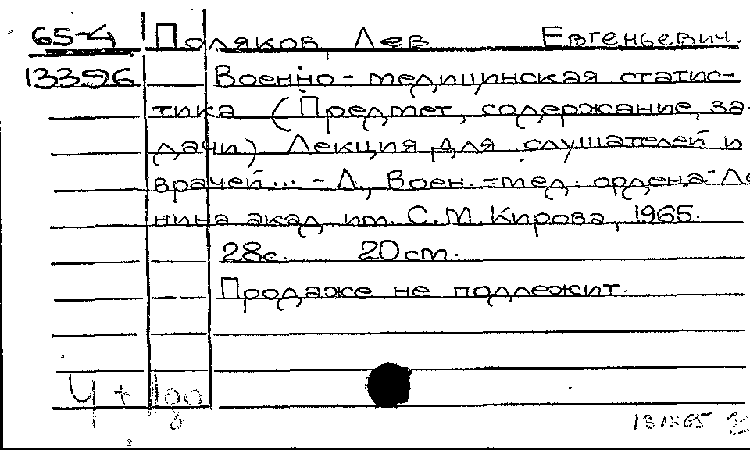 65-4 Поляков, Лев Евгеньевич.
13396 Военно-медицинская статис-
тика (Предмет, содержание, за-
дачи). Лекция для слушателей и
врачей... - Л., Воен.-мед. ордена Ле-
нина акад. им. С.М. Кирова, 1965.
28с. 20см.
Продаже не подлежит.